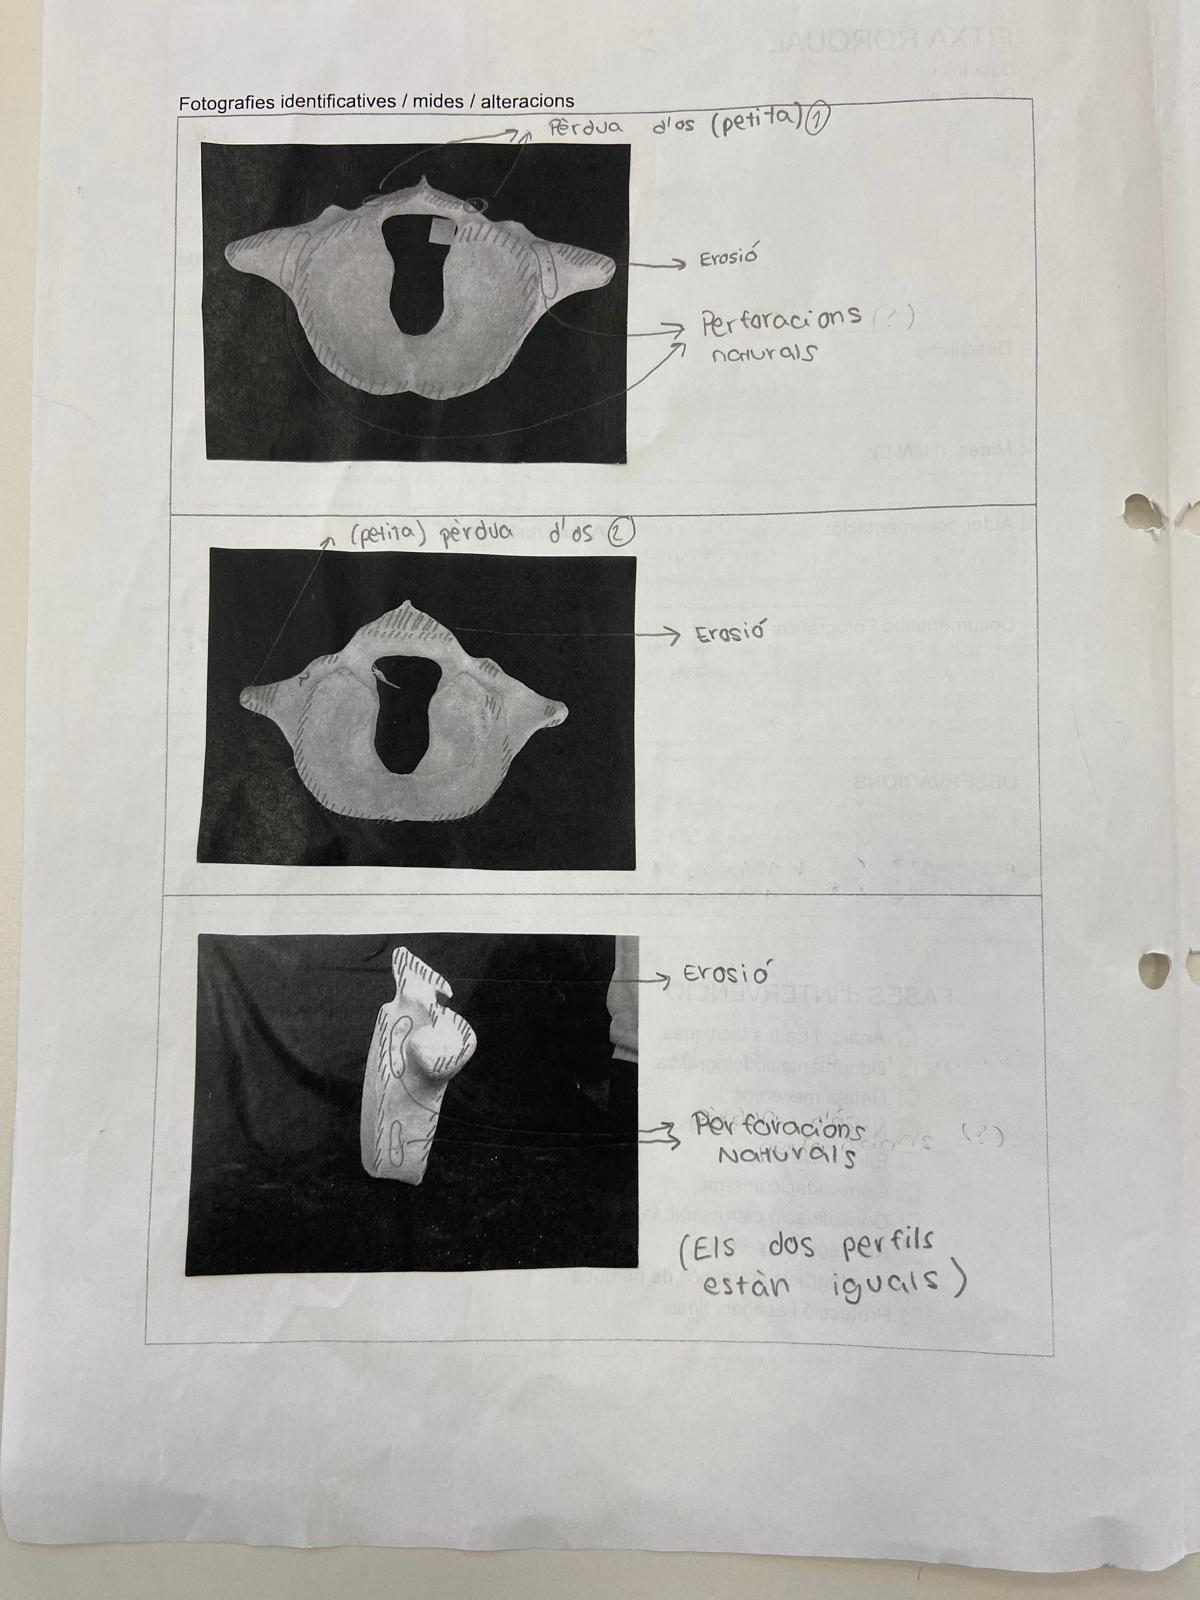 Fotografies identificatives / mides / alteracions
Pèrdua d'os (petita) 1
Erosió
Perforacions (?)
naturals
(petita) pèrdua d'os 2
Erosió
Erosió
Perforacións
Naturals
(Els dos perfils
estàn iguals)